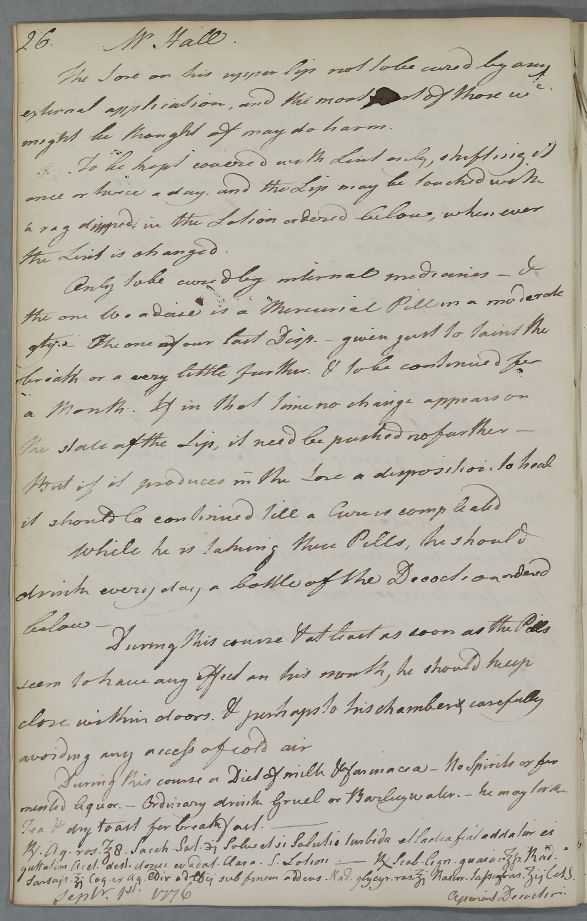 26. Mr. Hall.
The sore on his upper lip not to be cured by any
external application, and the most of those wch.
might be thought of may do harm.
To be kept covered with Lint only, shifting it
once or twice a day. and the Lip may be touched with
a rag dipped in the Lotion ordered below, when ever
the Lint is changed.
Only to be cured by internal medicines - &
the one I would advise is a Mercurial Pill in a moderate
qty. The one of our last Disp. - given just to taint the
breath or a very little further. & to be continued for
a Month. If in that time no change appears on
the state of the Lip, it need be pushed no further -
But if it produces in the Sore a disposition to heal
it should be continued till a Cure is compleated
While he is taking these Pills, he should
drink every day a bottle of the Decoction ordered
below -
During this course & at least as soon as the Pills
seem to have any effect on his mouth, he should keep
close within doors. & perhaps to his chamber, carefully
avoiding any access of cold air
During this course a Diet of milk & farinacea - No Spirits or fer
mented liquor. - Ordinary drink Gruel or Barley water. - he may take
Tea & dry toast for breakfast.
℞. Aq. ros. ℥8. Sacch. Sat. Solve et si Solutio turbida et lactea fiat addatur ei
guttatim Acet. dest. donec evadat clara. S. Lotion - ℞ Scob. lign. guaiac. Rad.
Sarsap. Coq. ex aq. sub finem addens. Rad. glycyr. ras. Rasur. Sassafras.
Septr. 1st. 1776 Aperient Decoction